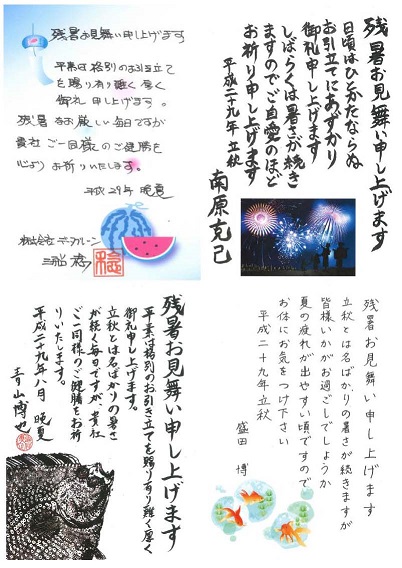 残暑お見舞い申し上げます
平素は格別のお引立て
を賜り有り難く厚く
御礼申し上げます。
残暑なお厳しい毎日ですが
貴社ご一同様のご健勝を
心よりお祈りいたします。
平成29年 晩夏
残暑お見舞い申し上げます
日頃はひとかたならぬ
お引立てにあずかり
御礼申し上げます
しばらくは暑さが続き
ますのでご自愛のほど
お祈り申し上げます
平成二十九年 立秋
南原克己
残暑お見舞い申し上げます
平素は格別のお引き立てを賜り有り難く厚く
御礼申し上げます。
立秋とは名ばかりの暑さ
が続く毎日ですが、貴社
ご一同様のご健勝をお祈
りいたします。
平成二十九年八月 晩夏
青山博也
残暑お見舞い申し上げます
立秋とは名ばかりの暑さが続きますが
皆様いかがお過ごしでしょうか
夏の疲れが出やすい頃ですので
お体にお気をつけ下さい
平成二十九年立秋
盛田 博